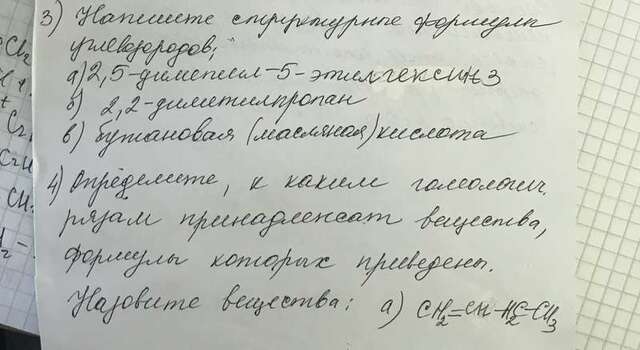 3) Напишите структурные формулы
углеводородов;
а) 2,5-диметил-5-этилгексин-3
б) 2,2-диметилпропан
в) бутановая (масляная) кислота
4) Определите, к каким гомологич.
рядам принадлежат вещества,
формулы которых приведены.
Назовите вещества: а) CH2=CH-H2C-CH3